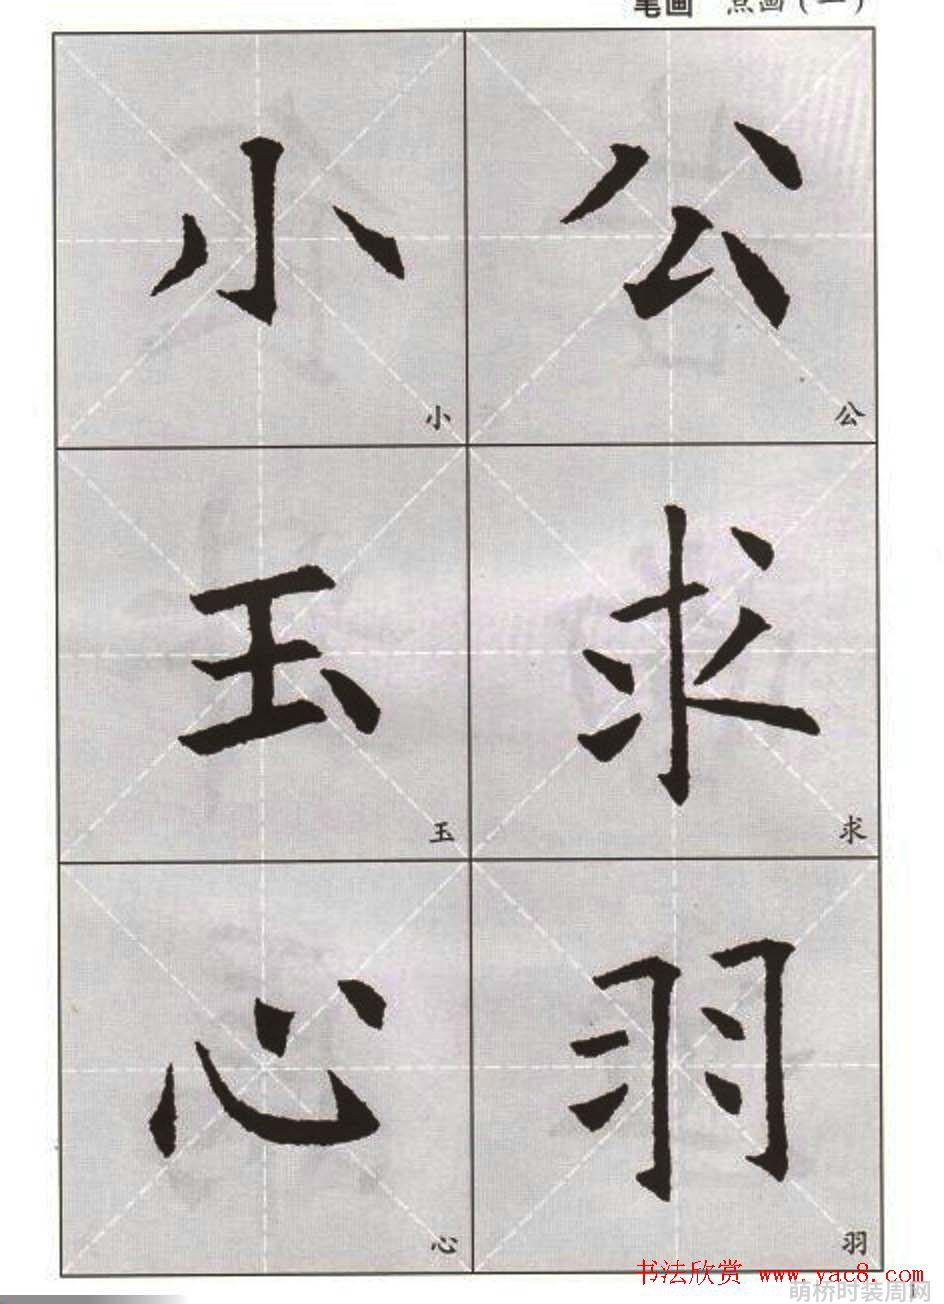 笔画 点画(一)
小 公
小 公
玉 求
玉 求
心 羽
心 羽
书法欣赏 www.yac8.com
萌桥时装周网
1